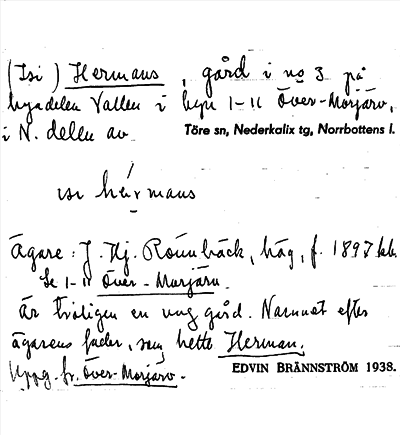 (Isi) Hermans, gård i no 3 på
byadelen Vallen i byn 1-11 Över-Morjärv,
i N. delen av Töre sn, Nederkalix tg, Norrbottens l.
isi hermans
Ägare: J. Hj. Rönnbäck, häg, f. 1897
Se 1-11 Över-Morjärv.
Är troligen en ung gård. Namnet efter
ägarens fader, som hette Herman.
Uppg. fr. Över-Morjärv. EDVIN BRÄNNSTRÖM 1938.